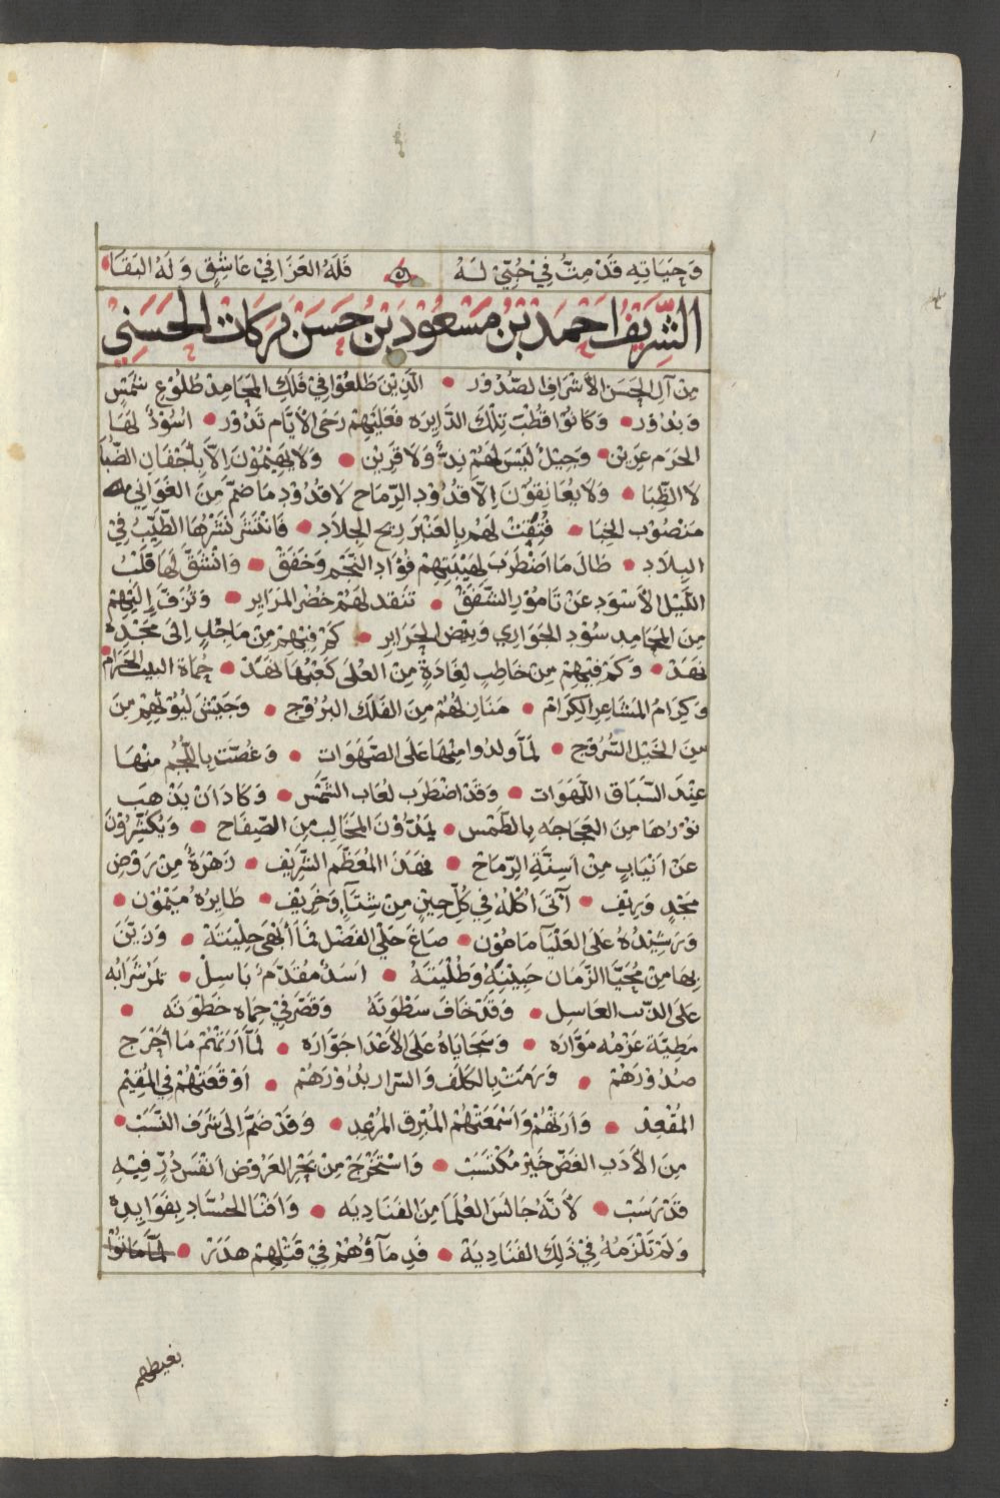 وَحَيَاتِهِ قَدْ مِتُّ فِي حُبِّي لَهُ فَلَهُ العَزَا فِي عَاشِقٍ وَلَهُ البَقَا
الشَّرِيْفُ احْمَدُ بْنُ مَسْعُوْدِ بْنُ حَسَنْ بَرَكَاتْ الحَسَنِي
مِنْ آلِ الحَسَنِ الأَشْرَافِ الصُّدُوْر الَّذِيْنَ طَلَعُوْا فِيْ فَلَكِ المَحَامِدْ طُلُوْعِ شَمْسٍ
وَبُدُوْر وَكَانُوْا قُطْبَ تِلْكَ الدَّايِرَه فَعَلَيْهِمْ رَحَى الأَيَّام تَدُوْر اُسُوْدٌ لَهَا
الحَرَم عَرِيْن وَجِيْلٌ لَيْسَ لَهُمْ نِدٌّ وَلَا قَرِيْن وَلَا يَهِيْمُوْنَ اِلَّا بِاَجْفَانِ الظُّبَا
لَا الظِّبَا وَلَا يُعَانِقُوْنَ اِلَّا قُدُوْدِ الرِّمَاح لَا قُدُوْدِ مَا ضَمَّ مِنَ الغَوَانِي
مَنْصُوْب الخِبَا فُتِقَتْ لَهُمْ بِالعَنْبَرَ رِيح الجِلَادِ فَانْتَشَرَ نَشْرُهَا الطَّيِّبُ فِيْ
البِلَادِ طَالَ مَا اضْطَرَبَ لِهَيْبَتِهِمْ فُؤَادِ النَّجْم وَخَفَقْ وَانْشَقَّ لَهَا قَلْبُ
اللَّيْلِ الأَسْوَدِ عَنْ تَامُوْرِ الشَّفَقْ تنقد لَهُمْ خُضْر المَرَاير وَتُزَفَّ اِلَيْهِمْ
مِنَ المَحَامِد سُوْدِ الجَوَارِي وَبِيْضِ الحَرَايِر كَمْ فِيْهِمْ مِنْ مَاجْدٍ اِلَى مَجْدِهِ
نَهَدْ وَكَمْ فِيْهِمْ مِنْ خَاطِبٍ لِغَادَةٍ مِنَ العُلَى كَعْبُهَا نَهَدْ حُمَاة البيت الحَرَامْ
وَكِرَامُ المَشَاعِرِ الكِرَامْ مَنَازِلهُمْ مِنَ الفَلَكِ البُرُوْج وَجَيَتْنَ لُيُوْثُهِمْ مِنَ
مِنَ الخَيْلِ السُّرُوْج لَمَّا وَلدُوا مِنْهَا عَلَى الصَّهَوَات وَغُصَّت بِاللُّجُم مِنْهَا
عِنْدَ السِّبَاق اللَّهَوَات وَقَدْ اضْطَرَب لُعَاب الشَّمْس وَكَادَ اَنْ يَذْهَب
نُوْرُهَا مِنَ العَجَاجَه بِالطَّمْس يَمُدُّوْنَ المَخَالِب مِنَ الصِّفَاح وَيُكَشِّرُوْنَ
عَنْ اَنْيَابٍ مِنْ اَسِنَّةِ الرِّمَاحْ فهَذَا المُعَظَّم الشَّرِيْف زَهْرَةٌ مِنْ رَوْضِ
مَجْدٍ وَرِيْف آتَى اُكُلَهُ فِي كُلِّ حِيْنٍ مِنْ شِتَآءٍ وَخَرِيْف طَايِرُهُ مَيْمُوْن
وَرَشِيْدُهُ عَلَى العَلْيَآ مَامُوْن صَاغَ حَلْيَ الفَضْل فَمَا اَبْهَى حِلْيَتَهْ وَزَيَّنَ
بِهَا مِنْ مُحَيَّا الزَّمَان جَبِيْنَهُ وَطُلْيَتَهُ اَسَدٌ مُقْدَمٌ بَاسِلْ تَمُرّ شَرَابُه
عَلَى الذّيب العَاسِل وَقَدْ خَافَ سَطْوَتَهْ وَقَصَّرَ فِيْ حِمَاه خَطْوَتَه
مَطِيَّة عَزْمُه مَوَّارَه وَسَجَايَاهُ عَلَى الأَعْدَا جَوَّارَه لَمَّا اَرَتْهُمْ مَا اَحْرَج
صُدُوْرَهُمْ وَرَمَتْ بِالكَلَفِ وَالسّرار بُدُوْرَهُمْ اَوْقَعَتْهُمْ فِي المُقِيْمِ
المُقْعِدْ وَاَرَتْهُمْ وَاَسْمَعَتْهُمْ المُبْرِق المُرْعِد وَقَدْ ضَمَّ اِلَى شَرَفِ النَّسَبْ
مِنَ الأَدَب الغَضّ خَيْرَ مُكْتَسَبْ وَاسْتَخْرَجَ مِنْ بَحْرِ العَرُوْضِ اَنْفَسَ دُرّ فِيْهِ
قَدْ رَسَبْ لأَنَّهُ جَالَسَ العُلَمَا مِنَ الفَنَادِيَه وَاَفْنَا الحُسَّادِ بِفَوَايِدِهِ
وَلَمْ تَلْزَمهُ فِيْ ذَلِكَ الفَنَادِيَهْ فَدِمَآؤُهُمْ فِيْ قَتْلِهِمْ هَدَرْ لَمَّا مَاتُوْا
بغيظهم